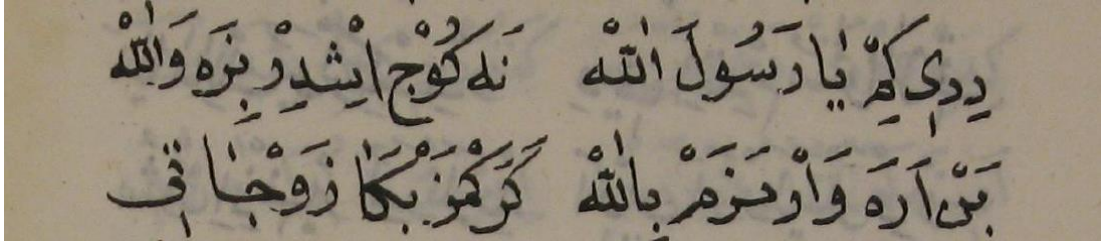 دِدِى كِمْ يَا رَسُولَ اللّٰهْ نَه كُوْج اِيْشْدِرْ بِزَه وَاللّٰهْ
بَنْ اَرَه وَارْمَزَمْ بِاللّٰهْ كَرَكْمَزْ بَكَا زَوْجَاتِى